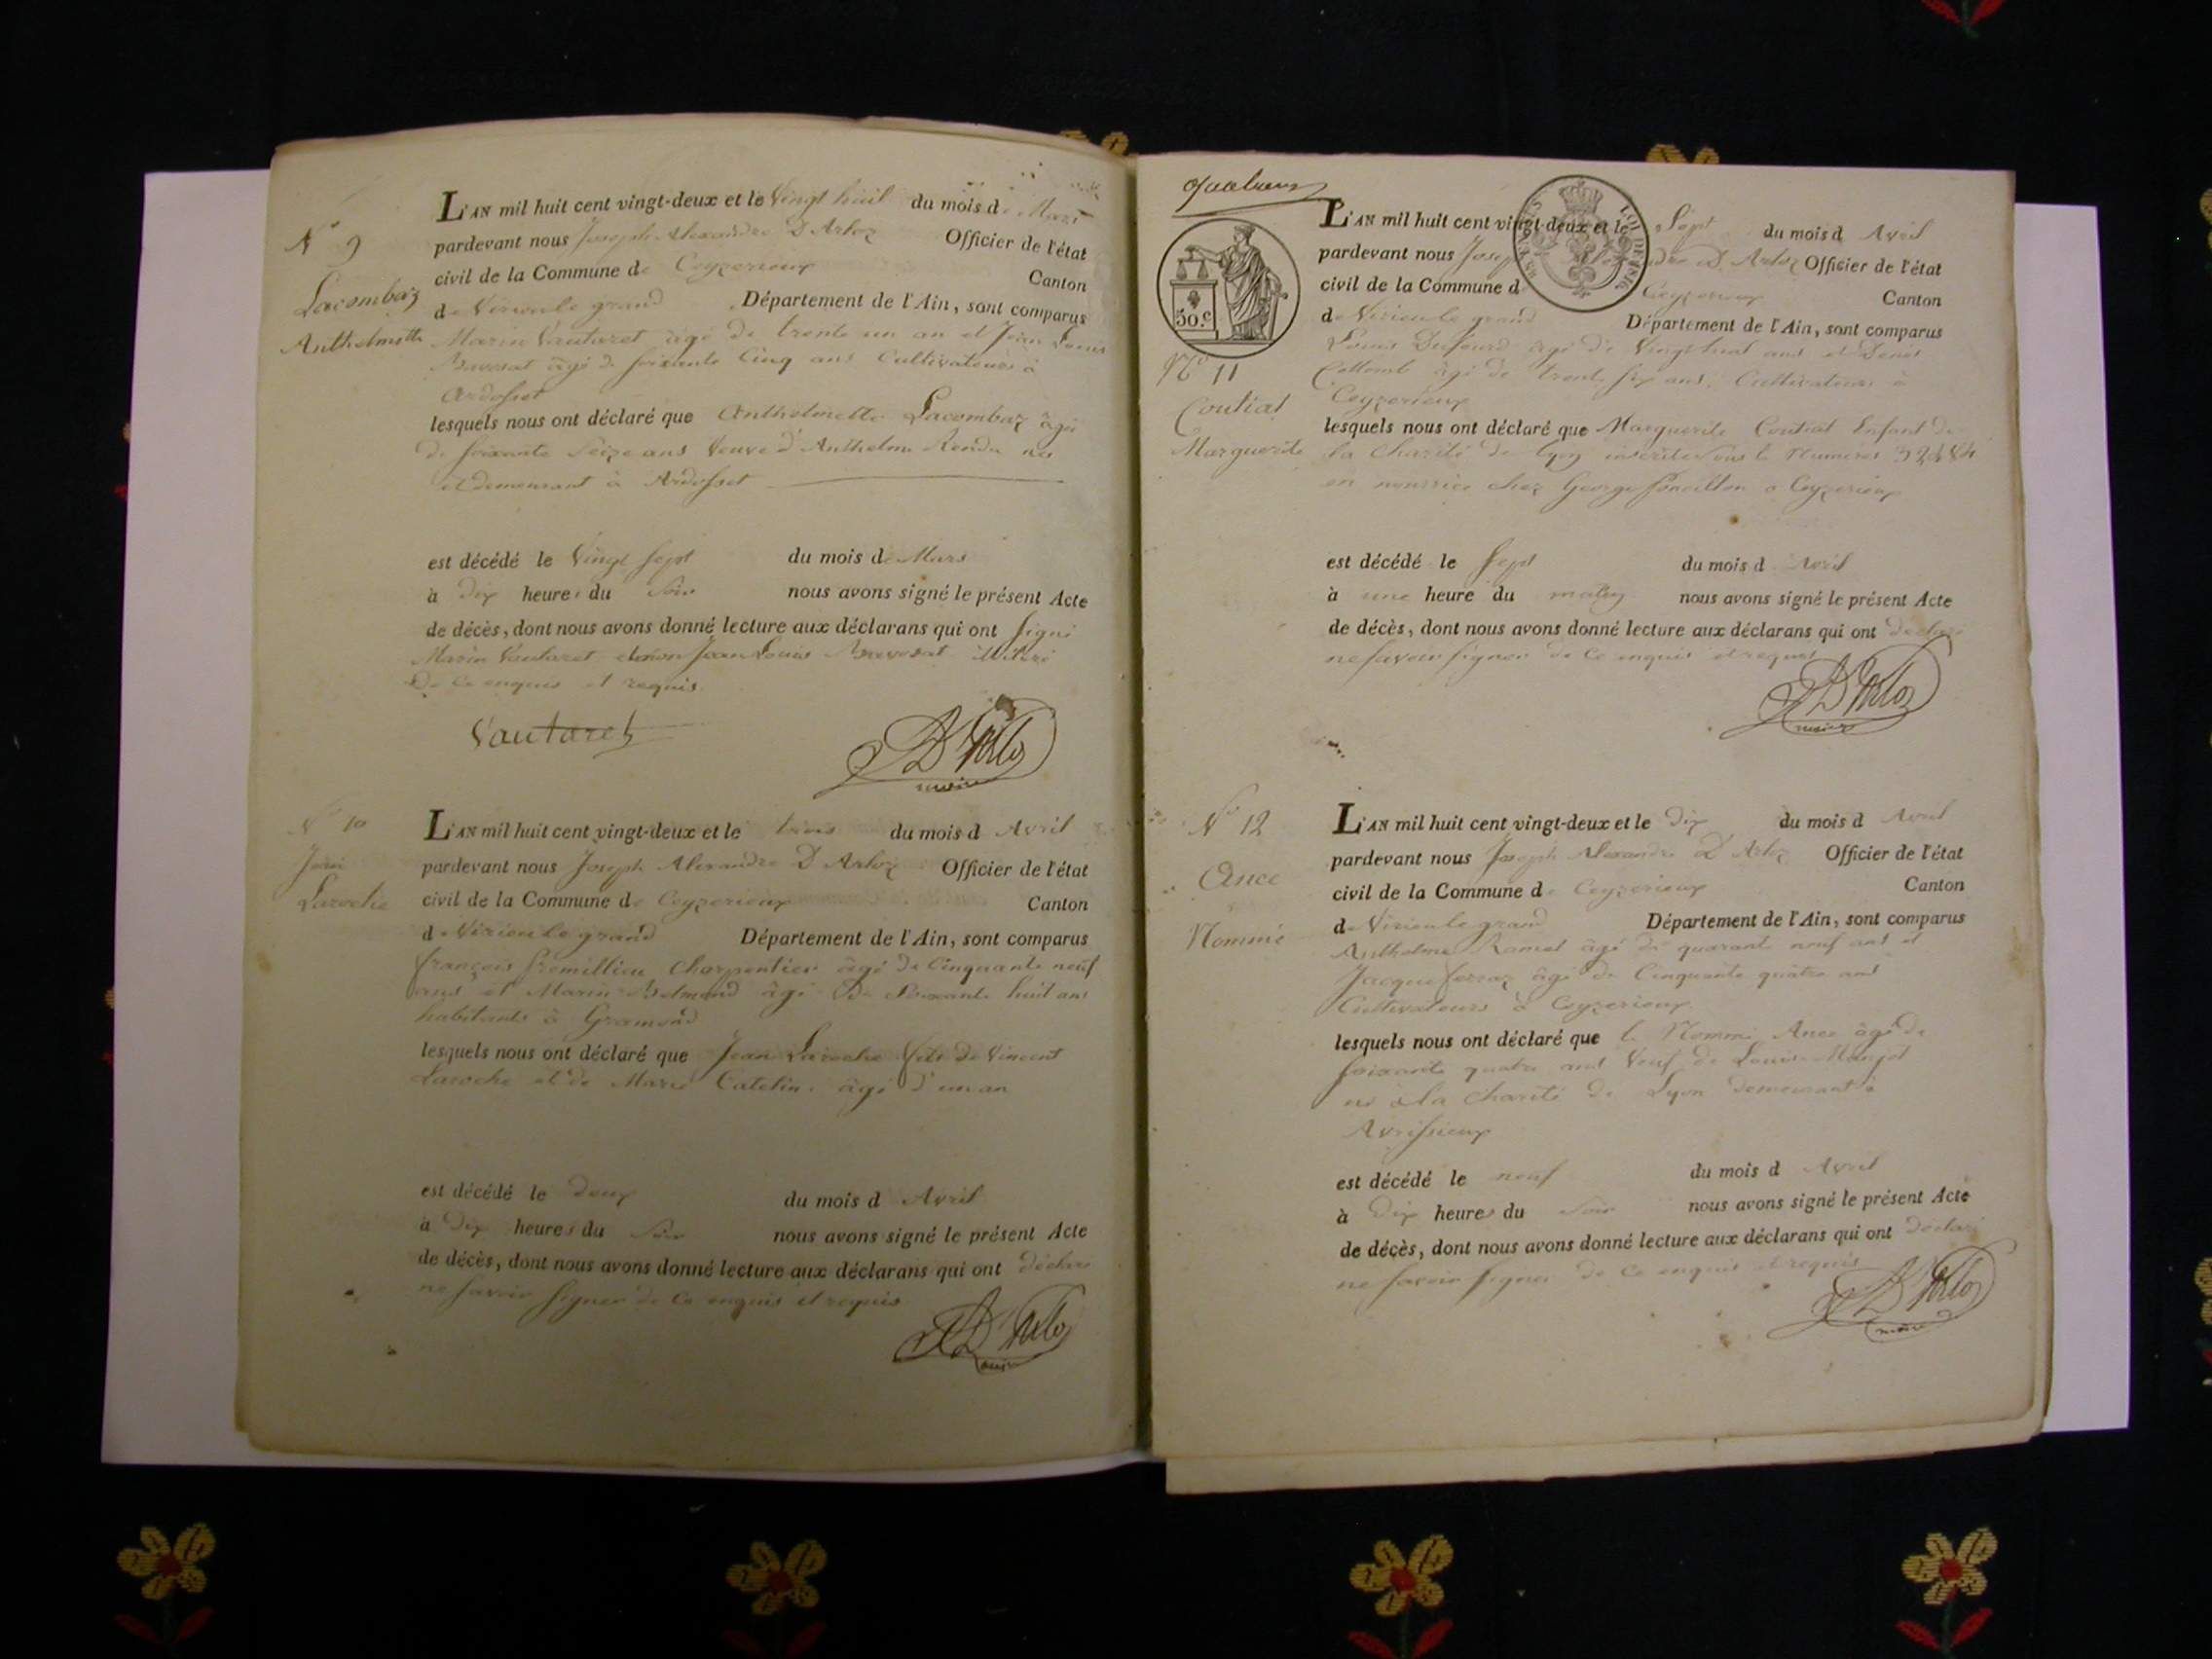 N° 9
Lacombaz
Anthelmette
L'AN mil huit cent vingt-deux et le Vingt huit du mois de Mars
pardevant nous Joseph Alexandre D'Arloz Officier de l'état
civil de la Commune de Ceyzerieux Canton
de Virieu le grand Département de l'Ain, sont comparus
Marin Vautaret âgé de trente un an et Jean Louis
âgé de soixante Cinq ans Cultivateurs à
Ardosset
lesquels nous ont déclaré que Anthelmette Lacombaz âgée
de soixante Seize ans Veuve d'Anthelme Rendu née
et demeurant à Ardosset
est décédé le Vingt sept du mois de Mars
à Dix heures du Soir nous avons signé le présent Acte
de décès, dont nous avons donné lecture aux déclarans qui ont signé
Marin Vautaret et non Jean Louis illitéré
De ce enquis et requis
Vautaret
D'Arloz
maire
N° 10
Jean
Laroche
L'AN mil huit cent vingt-deux et le trois du mois d Avril
pardevant nous Joseph Alexandre D'Arloz Officier de l'état
civil de la Commune de Ceyzerieux Canton
de Virieu le grand Département de l'Ain, sont comparus
françois fremillieu Charpentier âgé de Cinquante neuf
ans et Marin Belmond âgé de Soixante huit ans
habitants à Gramond
lesquels nous ont déclaré que Jean Laroche fils de Vincent
Laroche et de Marie Catelin âgé d'un an
est décédé le deux du mois d Avril
à Dix heures du Soir nous avons signé le présent Acte
de décès, dont nous avons donné lecture aux déclarans qui ont déclaré
ne savoir signer de ce enquis et requis
D'Arloz
maire
50.c
N° 11
Coutiat
Marguerite
L'AN mil huit cent vingt-deux et le Sept du mois d Avril
pardevant nous Joseph Alexandre D'Arloz Officier de l'état
civil de la Commune d Ceyzerieux Canton
de Virieu le grand Département de l'Ain, sont comparus
Louis Dufourd âgé de Vingt huit ans et Denis
Collomb âgé de trente six ans, Cultivateurs à
Ceyzerieux
lesquels nous ont déclaré que Marguerite Coutiat Enfant de
la Charité de Lyon inscrite sous le Numéros
en nourrice chez George à Ceyzerieux
est décédé le Sept du mois d Avril
à une heure du matin nous avons signé le présent Acte
de décès, dont nous avons donné lecture aux déclarans qui ont déclaré
ne savoir signer de ce enquis et requis
D'Arloz
maire
N° 12
Ance
Nommé
L'AN mil huit cent vingt-deux et le Dix du mois d Avril
pardevant nous Joseph Alexandre D'Arloz Officier de l'état
civil de la Commune de Ceyzerieux Canton
de Virieu le grand Département de l'Ain, sont comparus
Anthelme Ramel âgé de quarante neuf ans et
Jacque ferraz âgé de Cinquante quatre ans
Cultivateurs à Ceyzerieux
lesquels nous ont déclaré que le Nommé Ance âgé de
soixante quatre ans Veuf de Louise
né à la Charité de Lyon demeurant à
Avrissieux
est décédé le neuf du mois d Avril
à Dix heures du Soir nous avons signé le présent Acte
de décès, dont nous avons donné lecture aux déclarans qui ont Déclaré
ne savoir signer de ce enquis et requis
D'Arloz
maire